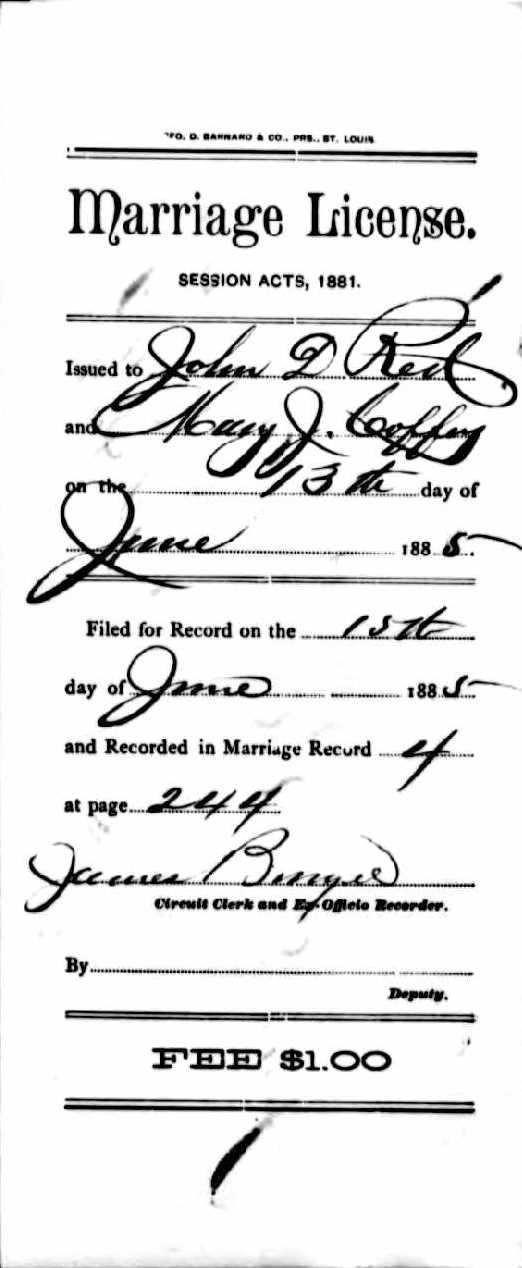 GEO. D. BARNARD & CO., PRS., ST. LOUIS
Marriage License.
SESSION ACTS, 1881.
Issued to John D Reed
and Mary J. Coffey
on the 13th day of
June 1885.
Filed for Record on the 15th
day of June 1885
and Recorded in Marriage Record 4
at page 244
James
Circuit Clerk and Ex-Officio Recorder.
By
Deputy.
FEE $1.00